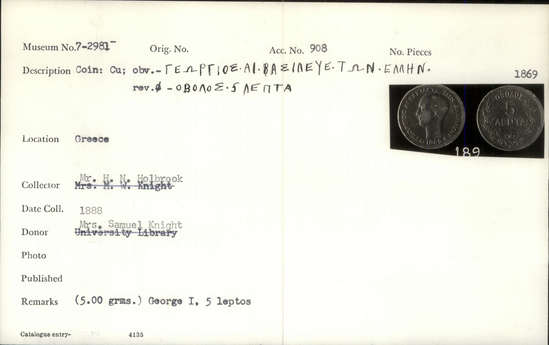 Museum No. 7-2981 Orig. No. Acc. No. 908 No. Pieces
Description Coin: Cu; obv.- ΓΕΩΡΓΙΟΣ·ΑΙ·ΒΑΣΙΛΕΥΣ·ΤΩΝ·ΕΛΛΗΝ· 1869
rev. - ΟΒΟΛΟΣ·5 ΛΕΠΤΑ
5
ΛΕΠΤΑ
189
Location Greece
Mr. H. N. Holbrook
Collector Mrs. M. W. Knight
Date Coll. 1888
Mrs. Samuel Knight
Donor University Library
Photo
Published
Remarks (5.00 grms.) George I, 5 leptos
Catalogue entry- 4135